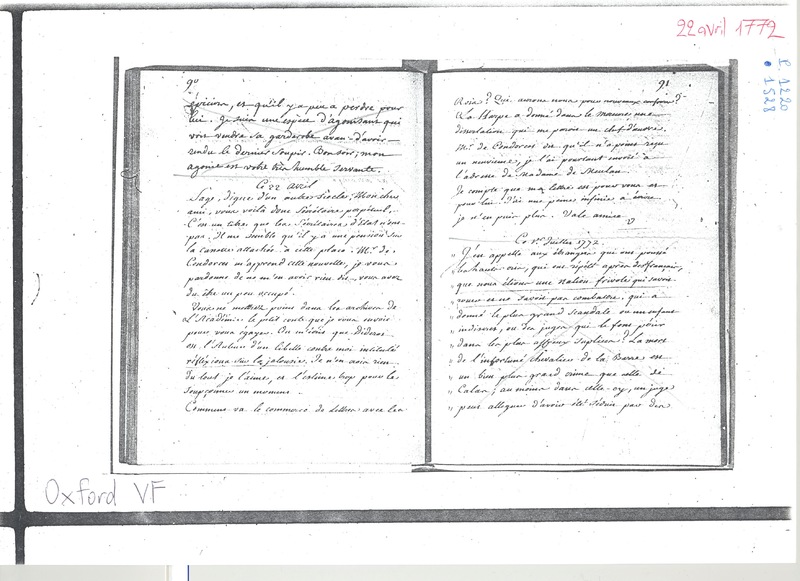 22 avril 1772
P. 1220
• 1528
90
épicier, et qu'il y a peu a perdre pour
lui. Je suis une espece d'agonisant qui
voit vendre sa garderobe avan-d'avoir
rendu le dernier soupir. Bon soir; mon
agonie est votre très humble servante.
Ce 22 avril
Sage, digne d'un autre siecle, Mon cher
ami, vous voilà donc Sécrétaire perpétuel,
C'est un titre que les Sécrétaires d'Etat n'ont
pas. Il me semble qu'il y a une pension sur
la cassette attachée à cette place. Mr. de
Condorcet m'apprend cette nouvelle, je vous
pardonne de ne m'en avoir rien dit, vous avez
du être un peu occupé.
Vous ne mettrez point dans les archives de
L'Académie le petit conte que je vous envoie
pour vous égayer. On m'écrit que Diderot
est l'Auteur d'un libelle contre moi intitulé
réfléxions sur la jalousie. Je n'en crois rien
du tout, je l'aime, et l'estime trop pour le
soupçonner un moment.
Comment va le commerce de Lettres avec les
91
Rois? Qui aurons nous pour nouveaux confreres?
La Harpe a donné dans le mercure une
dissertation qui me paroit un chef d'œuvre.
Mr. de Condorcet dit qu'il n'a point reçu
un neuvieme, je l'ai pourtant envoié à
l'adresse de Madame de Meulan.
Je compte que ma lettre est pour vous et
pour lui. J'ai une peine infinie à écrire
je n'en puis plus. Vale amice.
V
Ce 1er. Juillet 1772.
" J'en appelle aux étrangers qui ont poussé
" les hauts cris, qui ont répété après des français,
" que nous étions une nation frivole qui savoit
" rouer et ne savoit pas combattre. qui a
" donné le plus grand scandale ou un enfant
" indiscret, ou les juges qui le font périr
" dans les plus affreux suplices? La mort
" de l'infortuné chevalier de la Barre est
" un bien plus grand crime que celle de
" Calas; au moins dans celle-cy, un juge
" peut alléguer d'avoir été séduit par des
Oxford VF